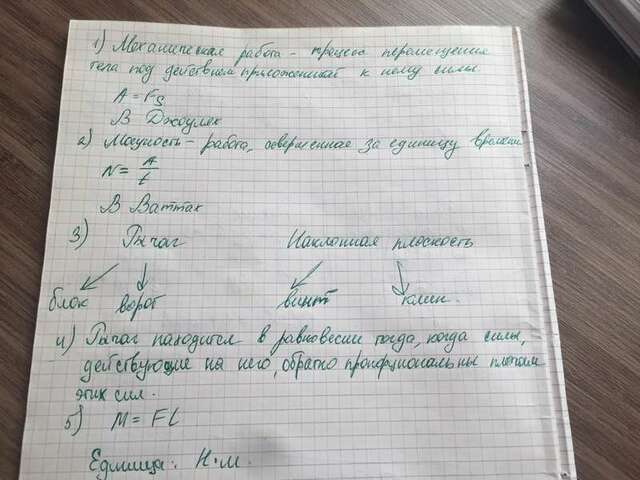 1) Механическая работа - процесс перемещения
тела под действием приложенной к нему силы
A = Fs
В Джоулях
2) Мощность - работа, совершенная за единицу времени
N = A/t
В Ваттах
3) Рычаг Наклонная плоскость
блок ворот винт клин.
4) Рычаг находится в равновесии тогда, когда силы,
действующие на него, обратно пропорциональны плечам
этих сил.
5) M = FL
Единица: Н·м.